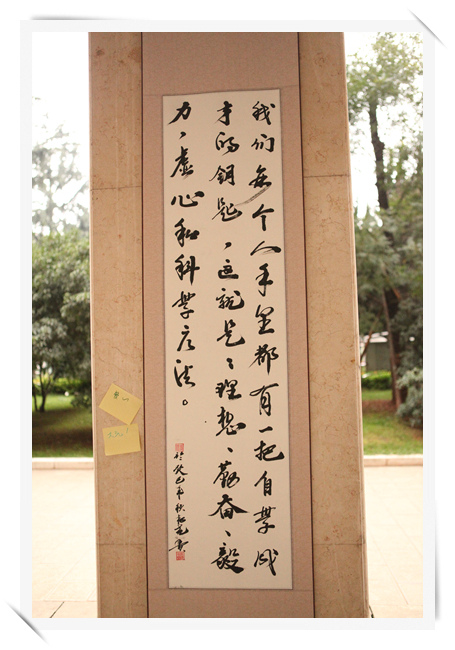 我们每个人手里都有一把自学成
才的钥匙，这就是：理想、勤奋、毅
力、虚心和科学方法。
于癸巳年秋